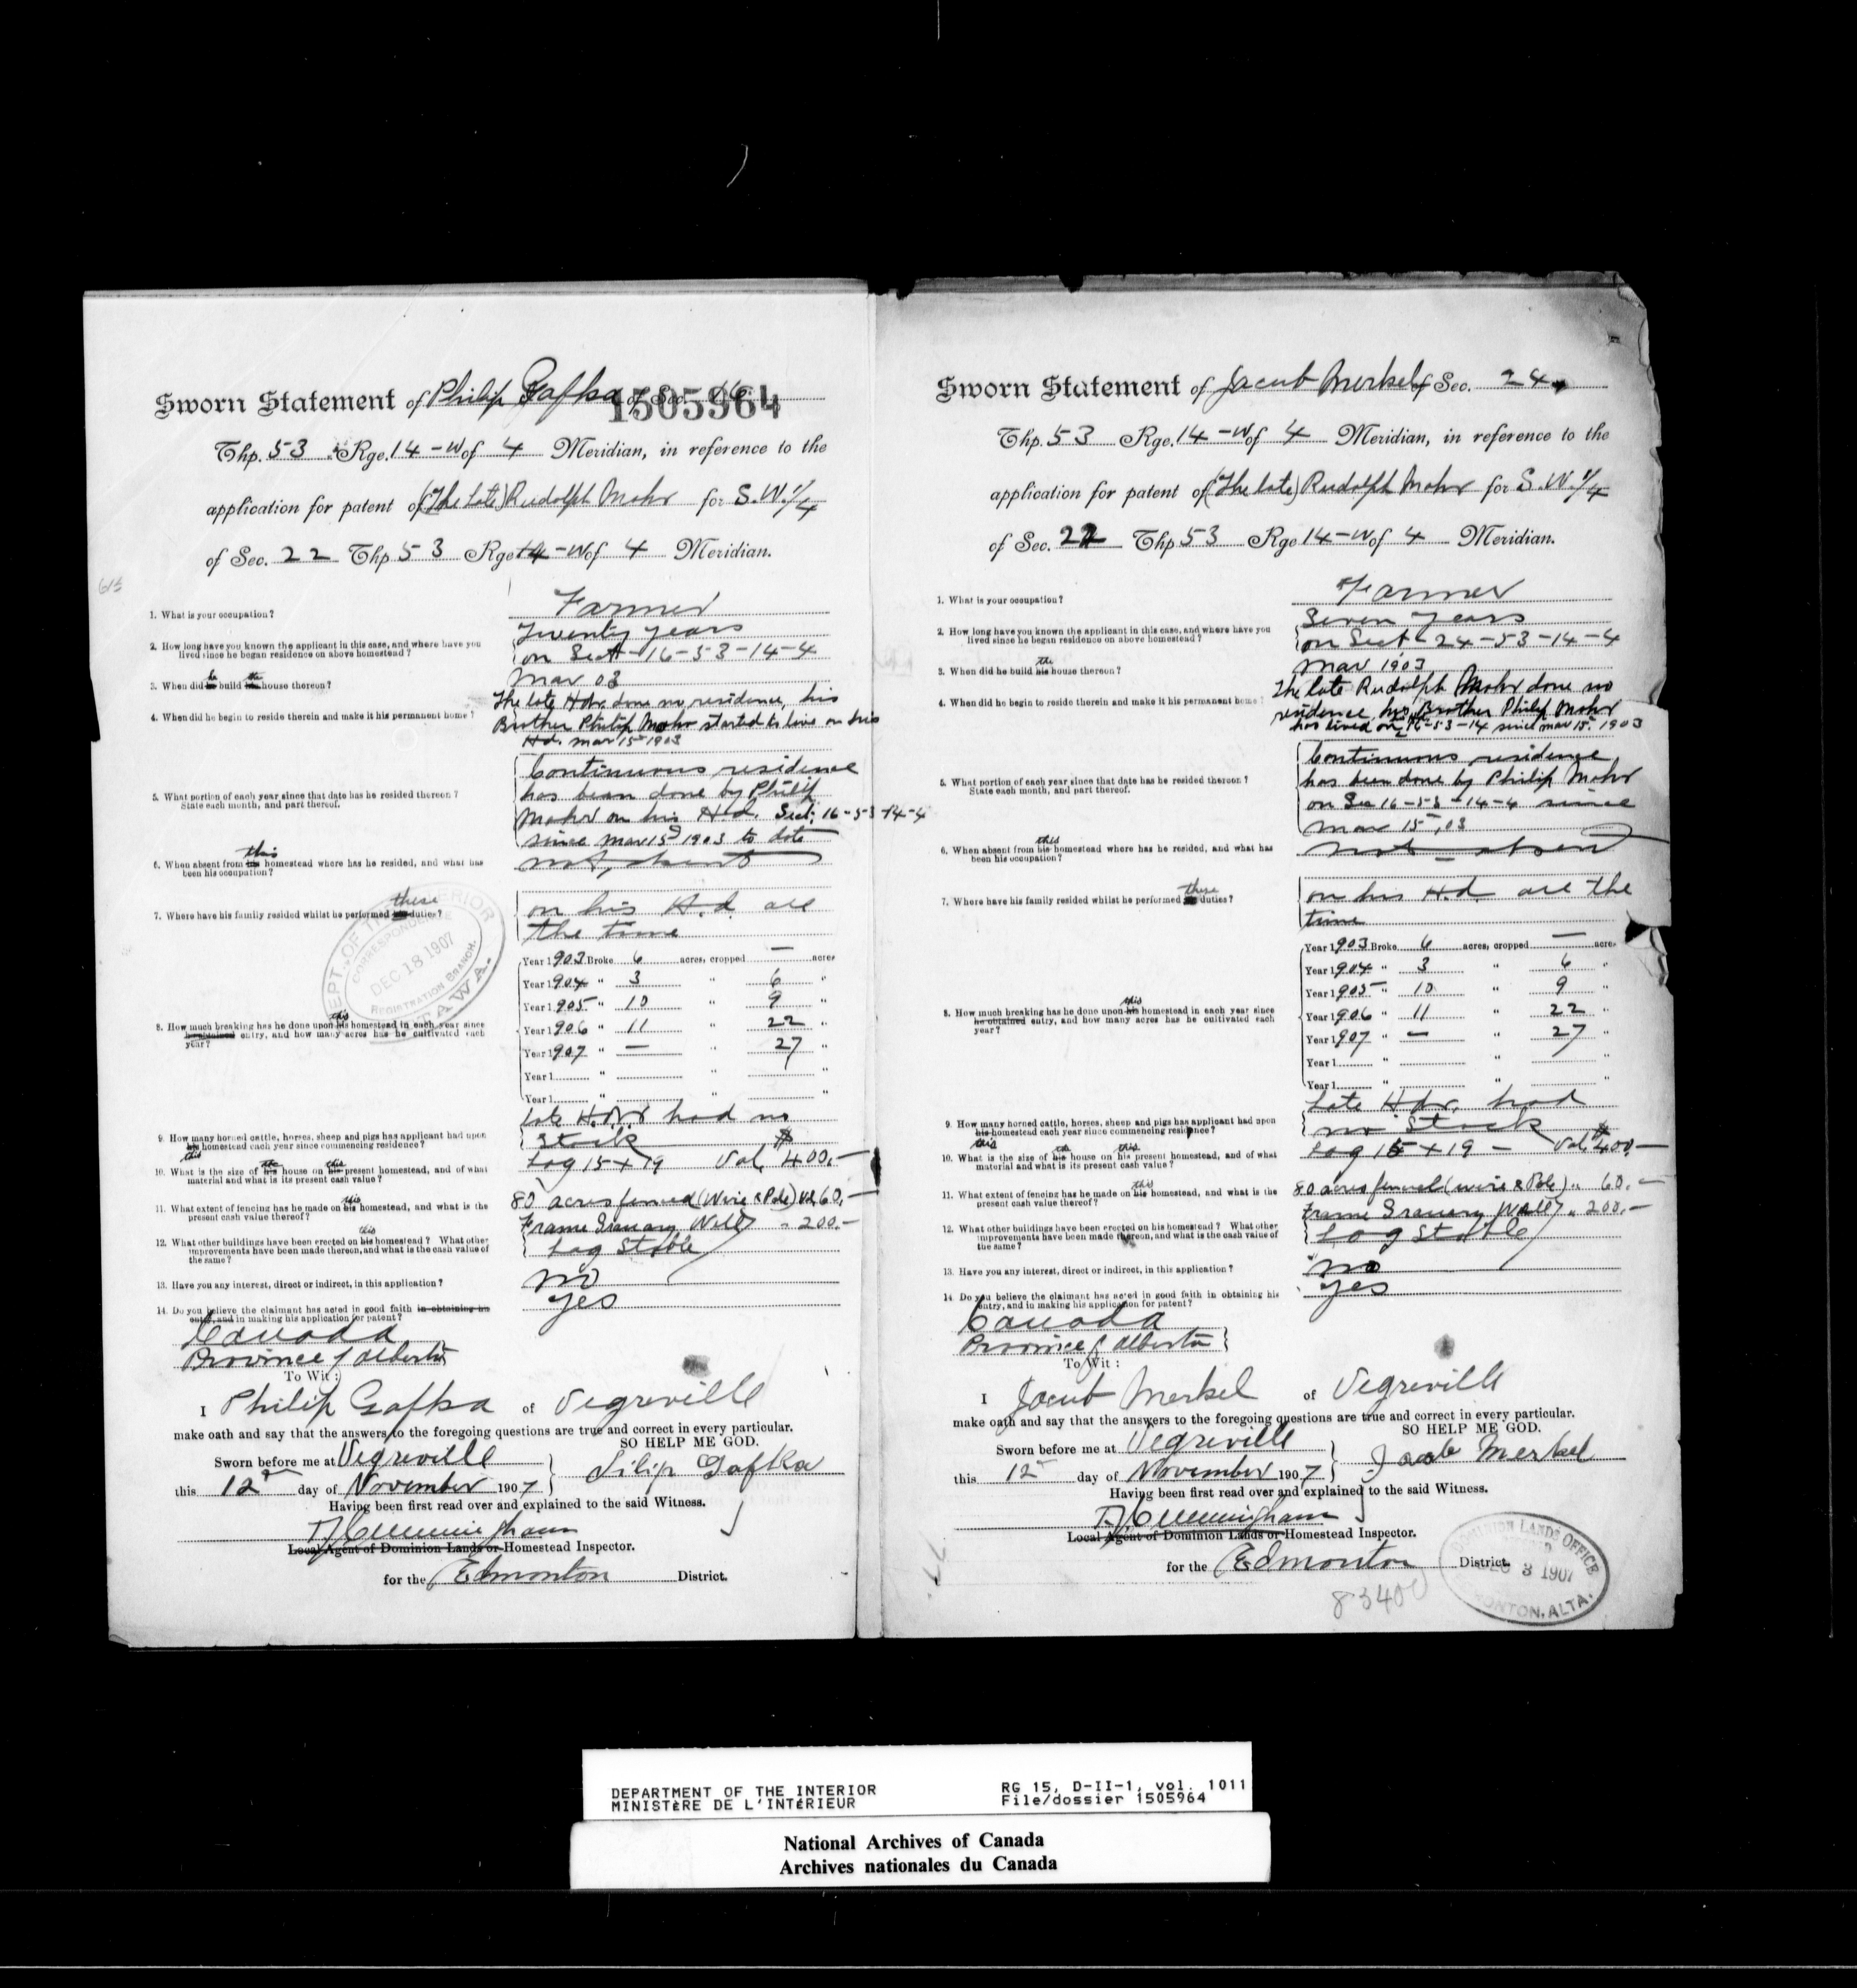 Sworn Statement of Philip Gafka of Sec. 16
1505964
Thp. 53 Rge. 14-W of 4 Meridian, in reference to the
application for patent of (The late) Rudolph Mohr for S.W.1/4
of Sec. 22 Thp 53 Rge 14-W of 4 Meridian.
1. What is your occupation? Farmer
2. How long have you known the applicant in this case, and where have you Twenty years
lived since he began residence on above homestead? on Sect - 16-53-14-4
3. When did he build the house thereon? Mar 03
4. When did he begin to reside therein and make it his permanent home? The late Hdr. done no residence, his
Brother Philip Mohr started to live on his
Hd. Mar 15th 1903
5. What portion of each year since that date has he resided thereon?
State each month, and part thereof.
Continuous residence
has been done by Philip
Mohr on his Hd. Sect; 16-53-14-4
since Mar 15 1903 to date
6. When absent from his this homestead where has he resided, and what has
been his occupation?
not absent
7. Where have his family resided whilst he performed these duties?
on his H.d. all
the time
DEPT. OF THE INTERIOR
CORRESPONDENCE
DEC 18 1907
REGISTRATION BRANCH.
OTTAWA.
8. How much breaking has he done upon his this homestead in each year since
he obtained entry, and how many acres has he cultivated each
year?
Year 1903 Broke 6 acres, cropped — acres
Year 1904 " 3 " 6 "
Year 1905 " 10 " 9 "
Year 1906 " 11 " 22 "
Year 1907 " — " 27 "
Year 1 " "
Year 1 " "
9. How many horned cattle, horses, sheep and pigs has applicant had upon
his this homestead each year since commencing residence?
Late H.dr had no
Stock
10. What is the size of his the house on his this present homestead, and of what
material and what is its present cash value?
Log 15 x 19 Val. $400.—
11. What extent of fencing has he made on his this homestead, and what is the
present cash value thereof?
80 acres fenced (Wire & Pole) Val 60.—
12. What other buildings have been erected on his this homestead? What other
improvements have been made thereon, and what is the cash value of
the same?
Frame Granary Well " 200.—
Log Stable
13. Have you any interest, direct or indirect, in this application? no
14. Do you believe the claimant has acted in good faith in obtaining his
entry, and in making his application for patent?
yes
Canada
Province of Alberta
To Wit:
I Philip Gafka of Vegreville
make oath and say that the answers to the foregoing questions are true and correct in every particular.
SO HELP ME GOD.
Sworn before me at Vegreville
this 12th day of November 1907
Filip Gafka
Having been first read over and explained to the said Witness.
T. Cunningham
Local Agent of Dominion Lands or Homestead Inspector.
for the Edmonton District.
Sworn Statement of Jacub Merkel of Sec. 24
Thp. 53 Rge. 14-W of 4 Meridian, in reference to the
application for patent of (The late) Rudolph Mohr for S.W.1/4
of Sec. 22 Thp 53 Rge 14-W of 4 Meridian.
1. What is your occupation? Farmer
2. How long have you known the applicant in this case, and where have you Seven years
lived since he began residence on above homestead? on Sect - 24-53-14-4
3. When did he build his the house thereon? Mar 1903
4. When did he begin to reside therein and make it his permanent home?
The late Rudolph Mohr done no
residence his Brother Philip Mohr
has lived on 16-53-14 since Mar 15th. 1903
5. What portion of each year since that date has he resided thereon?
State each month, and part thereof.
Continuous residence
has been done by Philip Mohr
on Sec 16-53-14-4 since
Mar 15th, 03
6. When absent from his this homestead where has he resided, and what has
been his occupation?
not - absent
7. Where have his family resided whilst he performed these duties?
on his H.d. all the
time
8. How much breaking has he done upon his this homestead in each year since
he obtained entry, and how many acres has he cultivated each
year?
Year 1903 Broke 6 acres, cropped — acres
Year 1904 " 3 " 6 "
Year 1905 " 10 " 9 "
Year 1906 " 11 " 22 "
Year 1907 " — " 27 "
Year 1 " "
Year 1 " "
9. How many horned cattle, horses, sheep and pigs has applicant had upon
his this homestead each year since commencing residence?
Late Hdr. had
no Stock
10. What is the size of his the house on his this present homestead, and of what
material and what is its present cash value?
Log 15 x 19 — Val. $400.—
11. What extent of fencing has he made on his this homestead, and what is the
present cash value thereof?
80 acres fenced (wire & Pole) " 60.—
12. What other buildings have been erected on his homestead? What other
improvements have been made thereon, and what is the cash value of
the same?
Frame Granary Well " 200.—
Log Stable
13. Have you any interest, direct or indirect, in this application? no
14. Do you believe the claimant has acted in good faith in obtaining his
entry, and in making his application for patent?
yes
Canada
Province of Alberta
To Wit:
I Jacub Merkel of Vegreville
make oath and say that the answers to the foregoing questions are true and correct in every particular.
SO HELP ME GOD.
Sworn before me at Vegreville
this 12th day of November 1907
Jacob Merkel
Having been first read over and explained to the said Witness.
T. Cunningham
Local Agent of Dominion Lands or Homestead Inspector.
for the Edmonton District.
83400
DOMINION LANDS OFFICE
DEC 3 1907
EDMONTON, ALTA.
DEPARTMENT OF THE INTERIOR RG 15, D-II-1, vol. 1011
MINISTÈRE DE L'INTÉRIEUR File/dossier 1505964
National Archives of Canada
Archives nationales du Canada